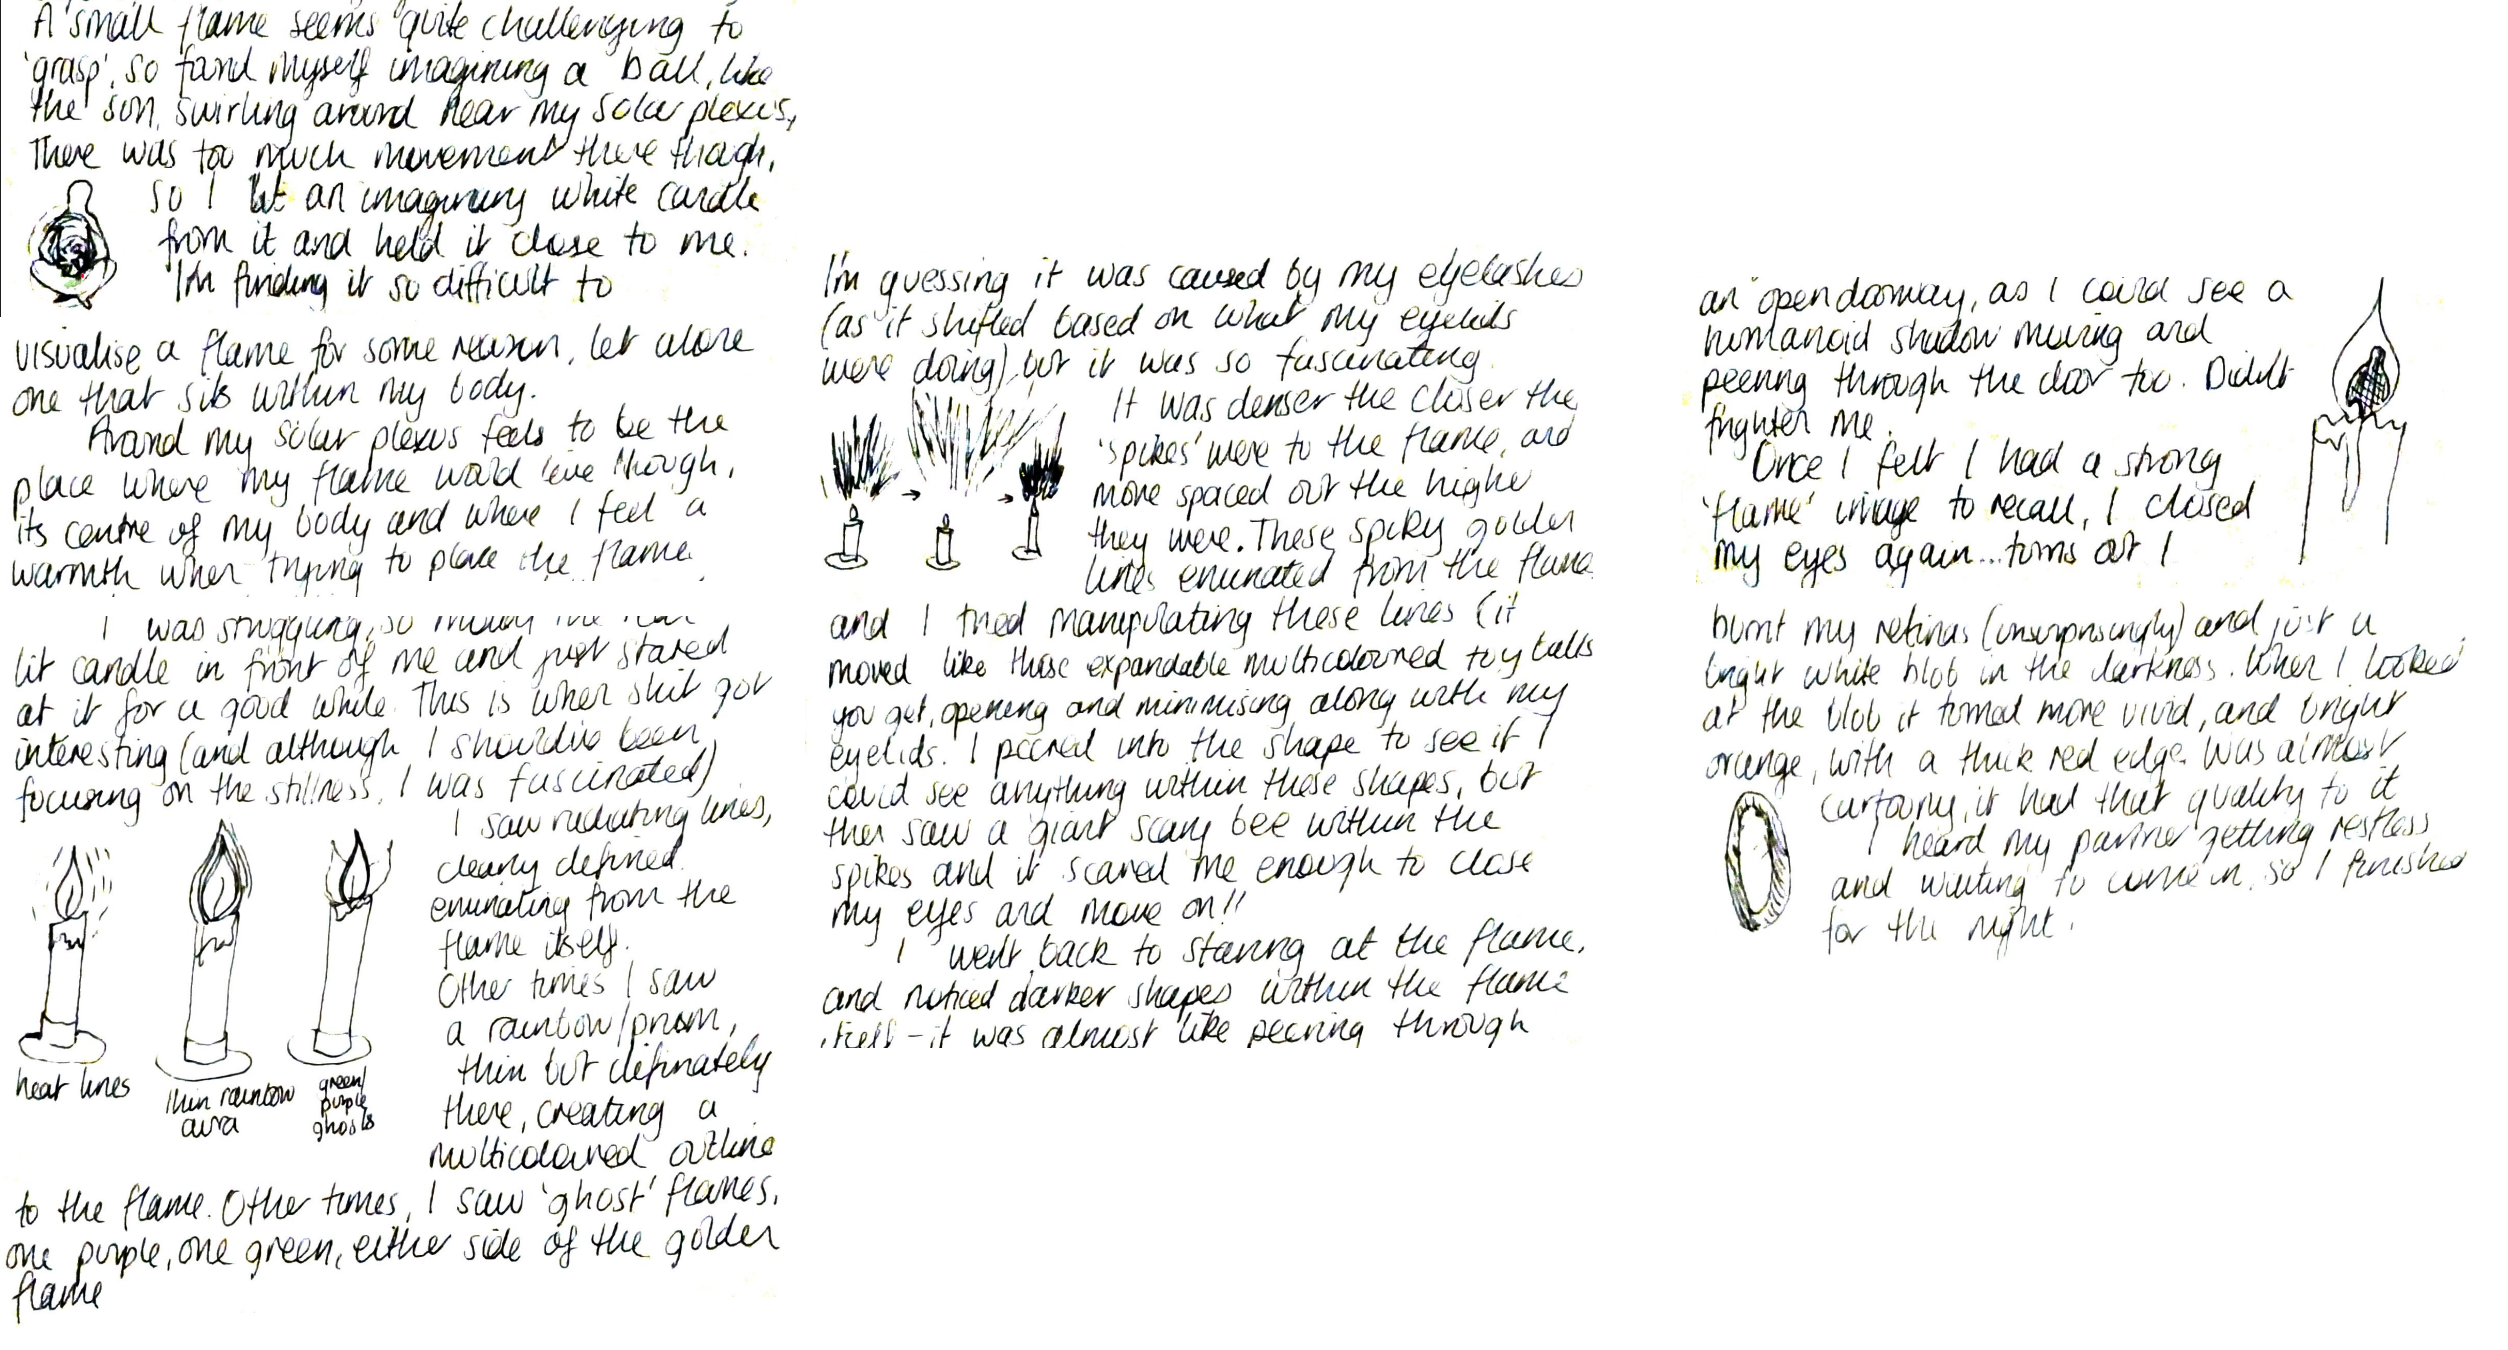 A small flame seems quite challenging to
'grasp', so fand myself imagining a ball, like
the son, swirling around near my solar plexus,
There was too much movement there though,
so I lit an imaginary white candle
from it and held it close to me.
I'm finding it so difficult to
visualise a flame for some reason, let alone
one that sits within my body.
Around my solar plexus feels to be the
place where my flame would live though,
its centre of my body and where I feel a
warmth when trying to place the flame
I was struggling, so
lit candle in front of me and just stared
at it for a good while. This is when shit got
interesting (and although I should've been
focusing on the stillness, I was fascinated)
I saw radiating lines,
clearly defined
eminating from the
flame itself.
Other times I saw
a rainbow/prism,
thin but definately
there, creating a
multicoloured outline
heat lines
thin rainbow
aura
green/
purple
ghosts
to the flame. Other times, I saw 'ghost' flames,
one purple, one green, either side of the golden
flame
I'm guessing it was caused by my eyelashes
(as it shifted based on what my eyelids
were doing) but it was so fascinating
It was denser the closer the
'spikes' were to the flame, and
more spaced out the higher
they were. These spiky golden
lines eminated from the flame
and I tried manipulating these lines (it
moved like those expandable multicoloured toy balls
you get, opening and minimising along with my
eyelids. I peered into the shape to see if I
could see anything within these shapes, but
then saw a giant scary bee within the
spikes and it scared me enough to close
my eyes and move on!!
I went back to staring at the flame,
and noticed darker shapes within the flame
itself - it was almost like peering through
an open doorway, as I could see a
humanoid shadow moving and
peering through the door too. Didn't
frighten me.
Once I felt I had a strong
'flame' image to recall, I closed
my eyes again...turns out I
burnt my retinas (unsurprisingly) and just a
bright white blob in the darkness. When I looked
at the blob it turned more vivid, and bright
orange, with a thick red edge. Was almost
cartoony, it had that quality to it
I heard my partner getting restless
and waiting to come in, so I finished
for the night.